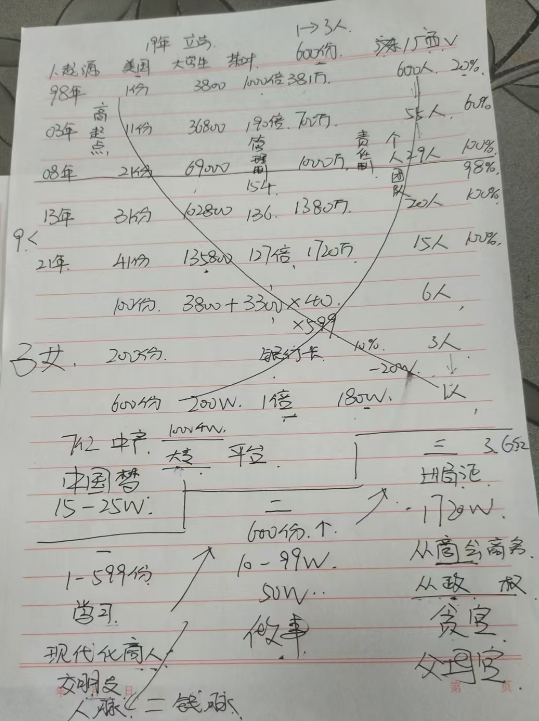 19年 立功 1→3人
600份 广西
1.起源 美国 大学生 600人 20%
98年 1份 3800 1000倍 381万
高起点
03年 11份 36800 190倍 700万 55人 60%
管理
154
责任
个人团队
08年 21份 69000 1000万 29人 100%
98%
13年 31份 102800 136 1380万 20人 100%
9<
21年 41份 135800 127倍 1720万 15人 100%
100份 3800+3300×40 6人
×599
子女 200份 银行卡 10% 3人
-20W
600份 -200W 1倍 180W 1人
7k2 中产 10004W
大专 平台
中国梦
15-25W
二
600份↑
10-99W
50W
做事
三 3.6亿
出局后
-1720W
从商 商务
从政 权
贫官
父母官
一
1-599份
学习
现代化商人
文明
人脉=钱脉
第 页